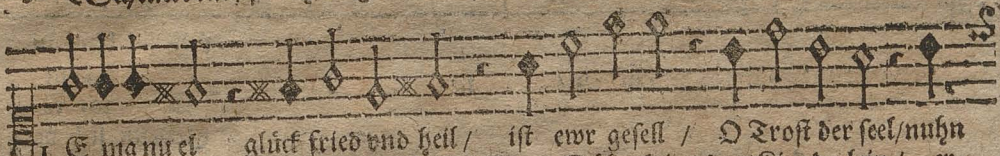 E ma nu el glück fried vnd heil / ist ewr gesell / O Trost der seel/nuhn